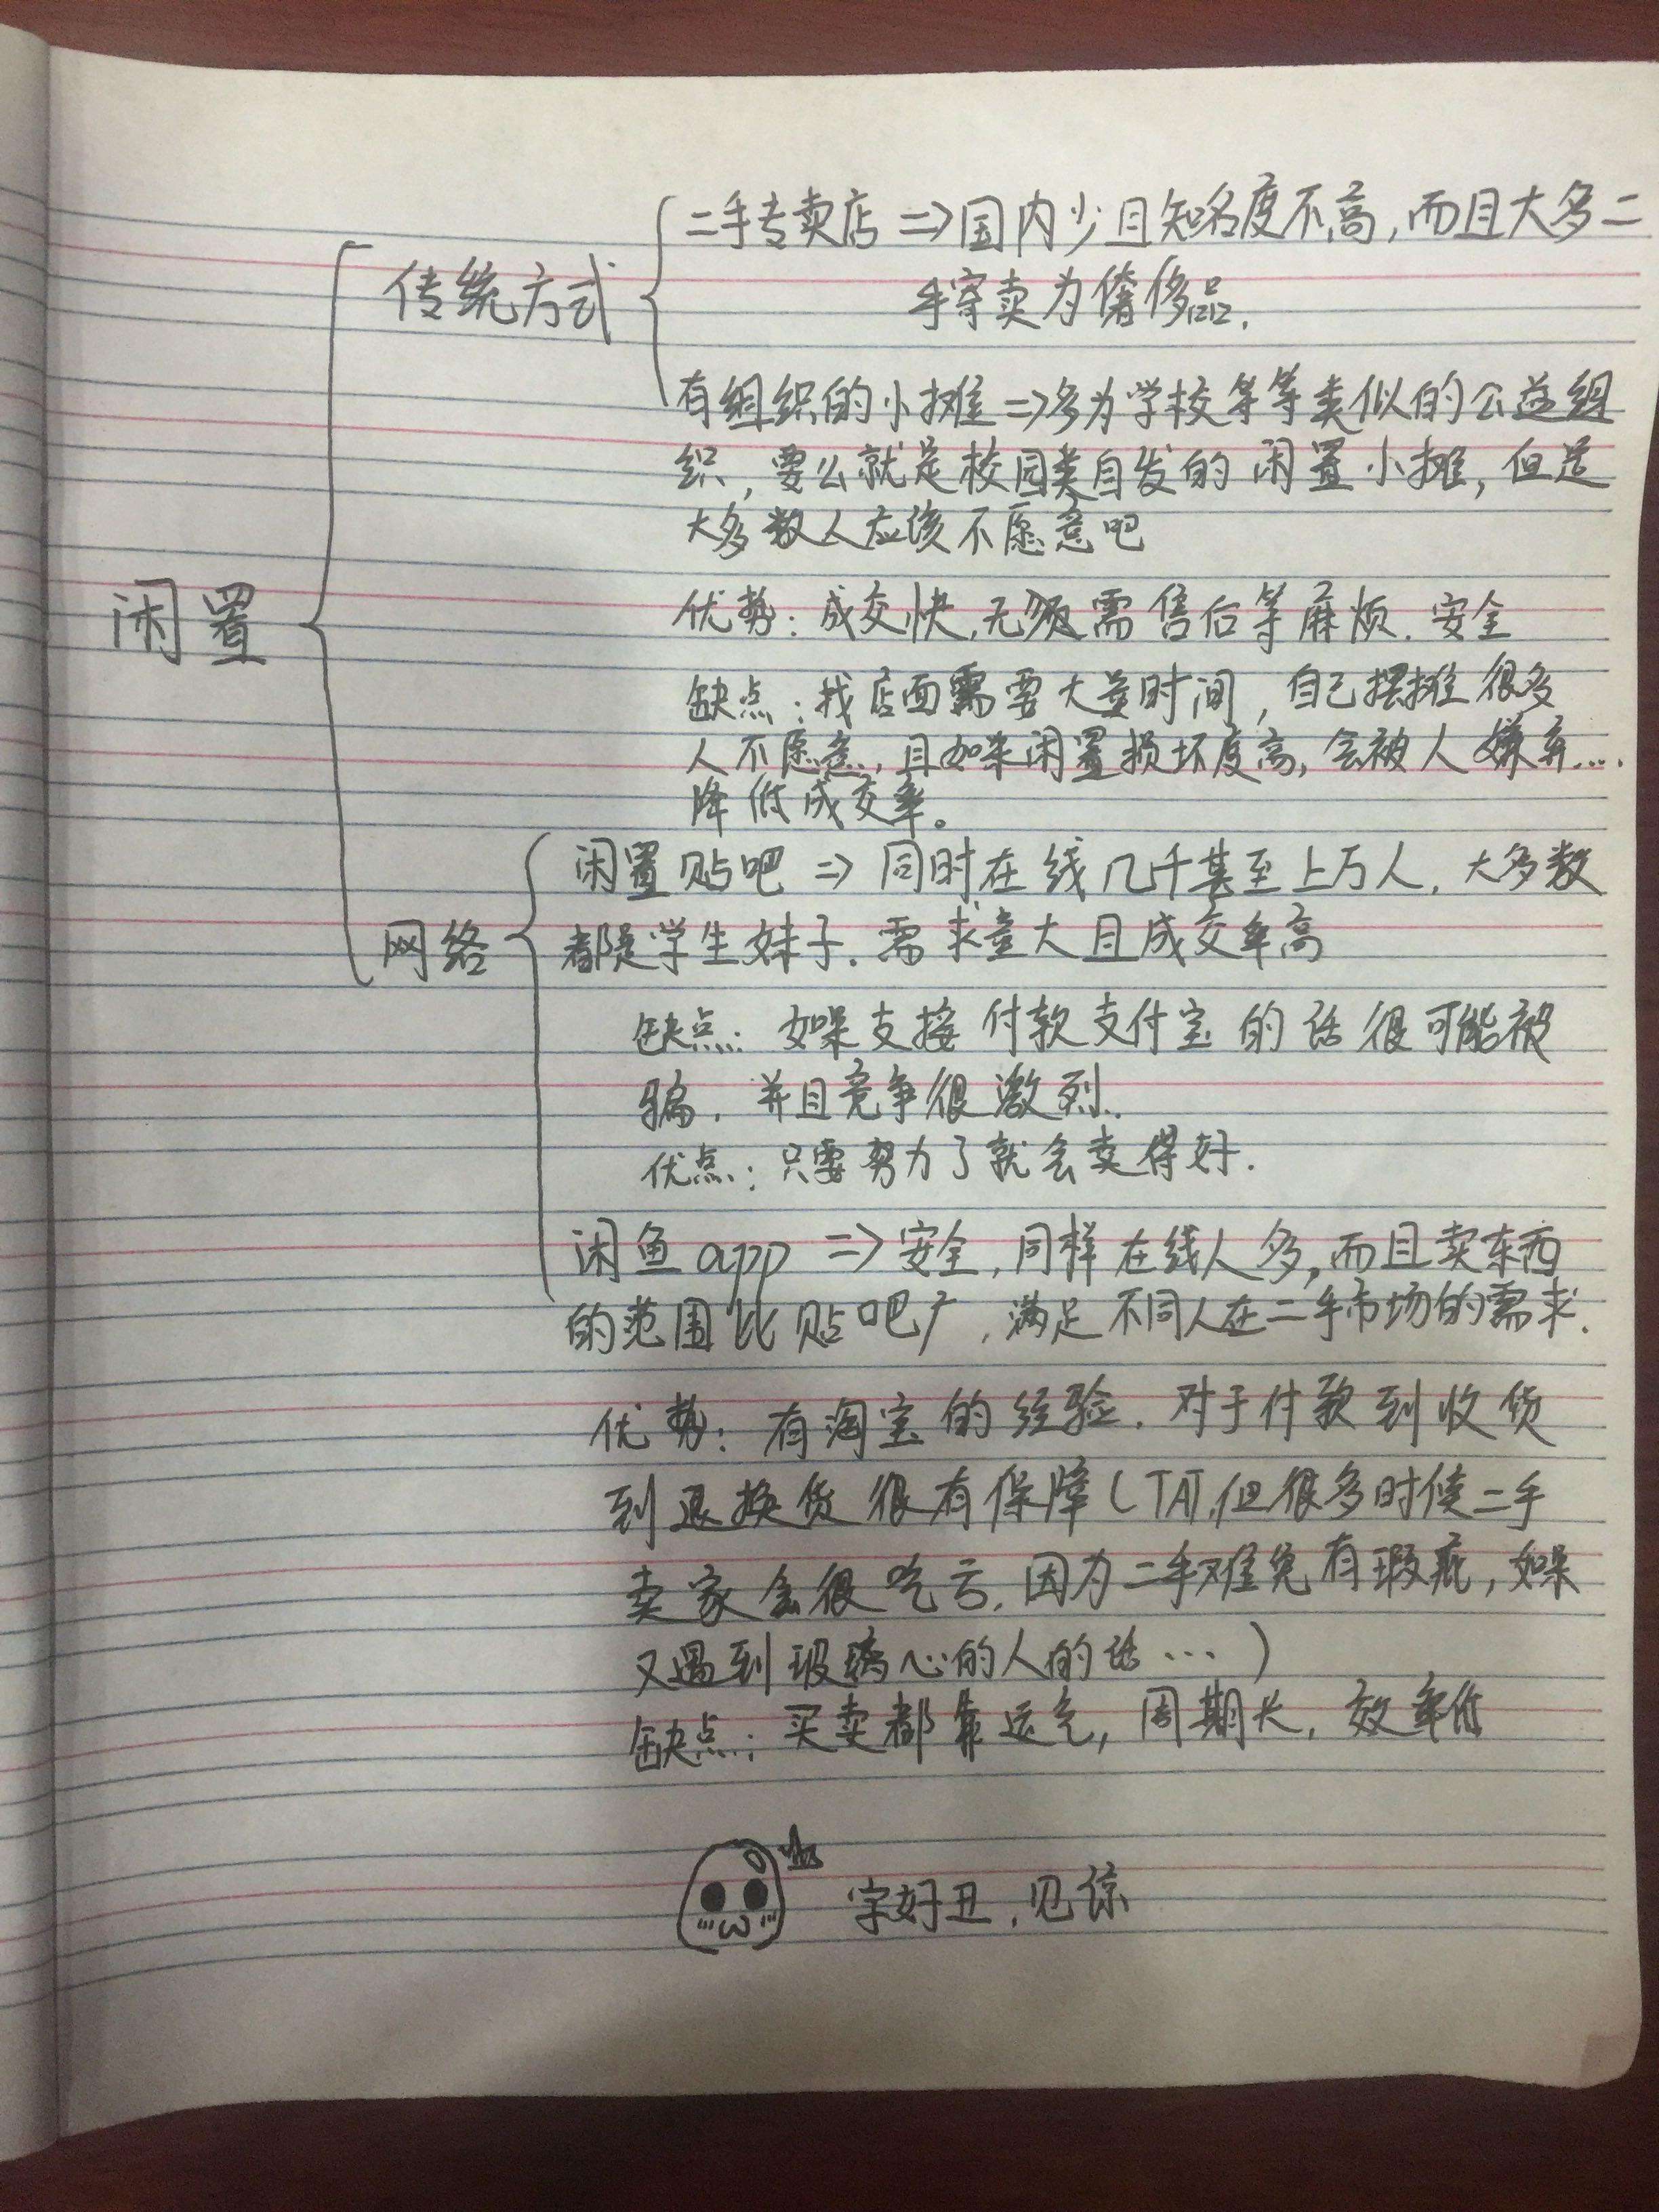 二手专卖店 => 国内少且知名度不高,而且大多二
手寄卖为奢侈品.
传统方式
有组织的小摊 => 多为学校等等类似的公益组
织,要么就是校园类自发的闲置小摊,但是
大多数人应该不愿意吧
优势:成交快,无须需售后等麻烦.安全
闲置
缺点:找店面需要大量时间,自己摆摊很多
人不愿意,且如果闲置损坏度高,会被人嫌弃....
降低成交率。
闲置贴吧 => 同时在线几千甚至上万人,大多数
网络
都是学生妹子.需求量大且成交率高
缺点:如果支接付款支付宝的话很可能被
骗.并且竞争很激烈..
优点:只要努力了就会卖得好.
闲鱼app => 安全,同样在线人多,而且卖东西
的范围比贴吧广,满足不同人在二手市场的需求.
优势:有淘宝的经验.对于付款到收货
到退换货很有保障(TAT,但很多时候二手
卖家会很吃亏,因为二手难免有瑕疵,如果
又遇到玻璃心的人的话...)
缺点:买卖都靠运气,周期长,效率低
字好丑,见谅